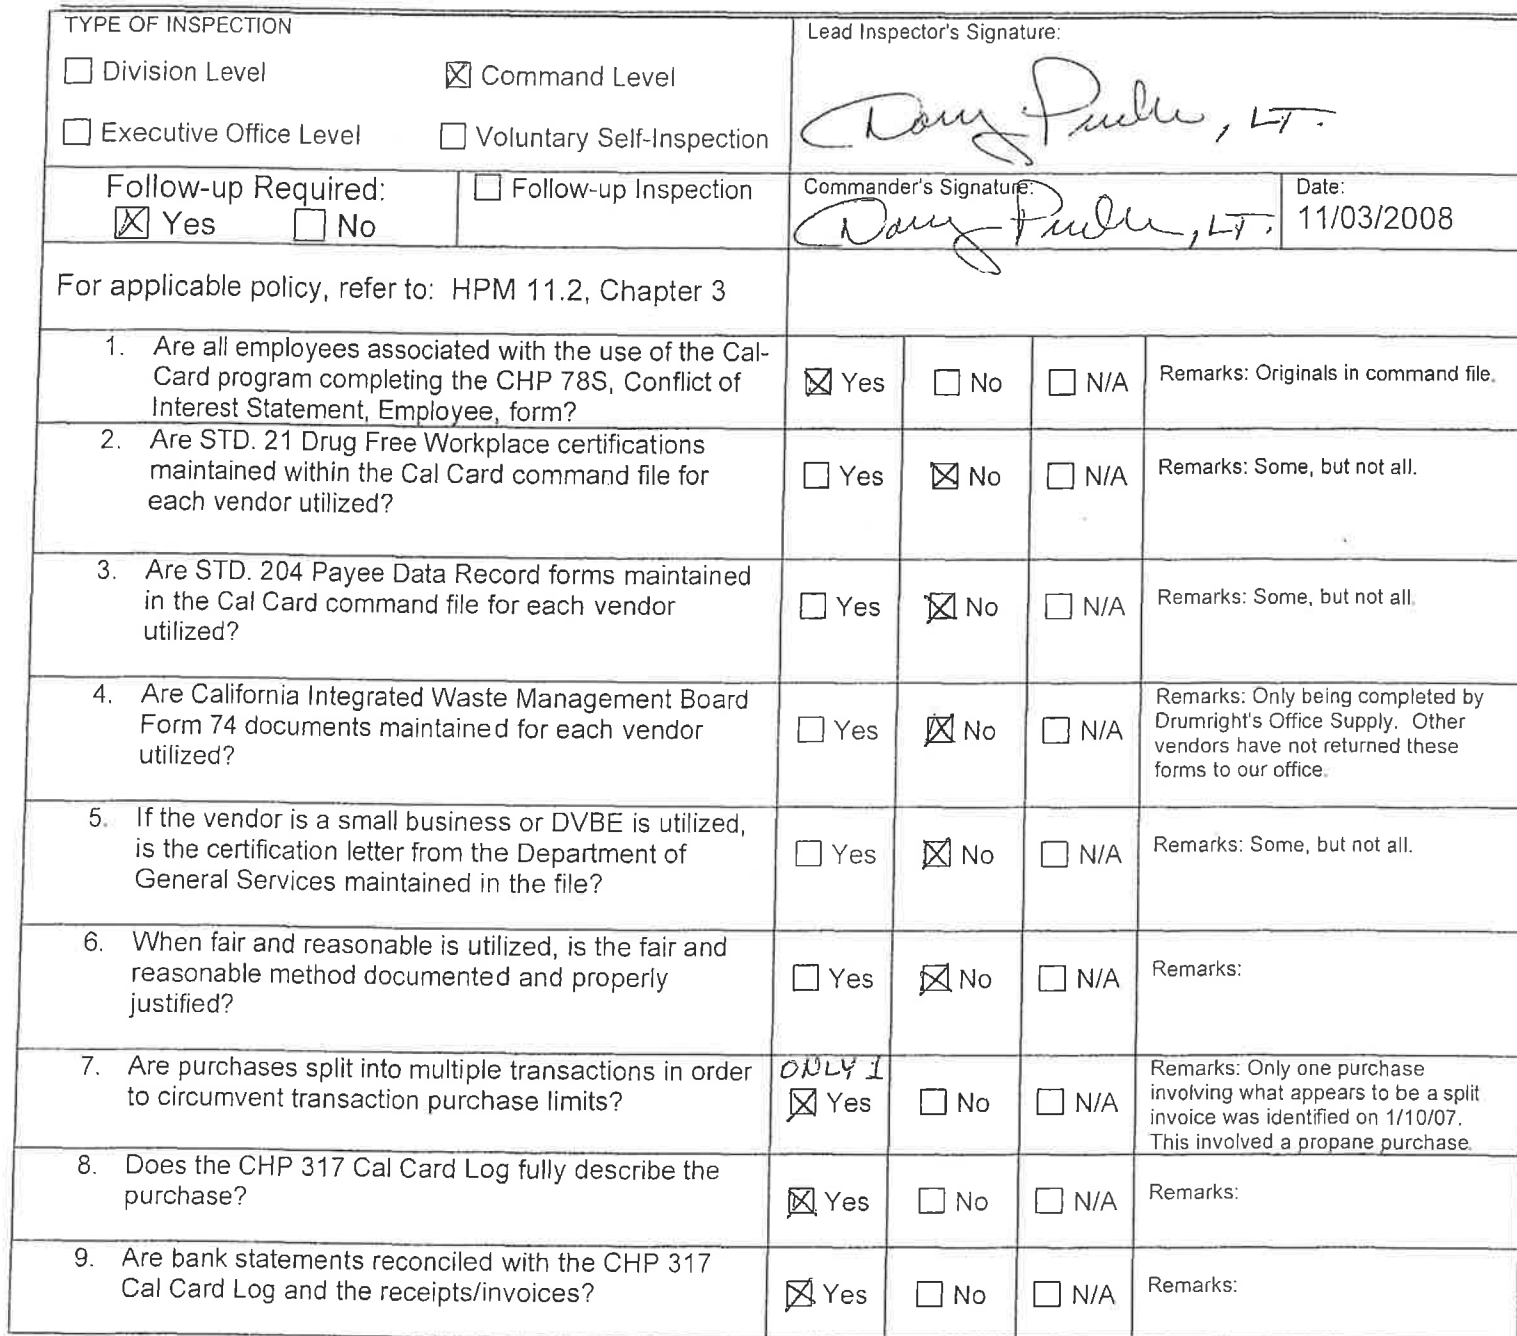 TYPE OF INSPECTION
☐ Division Level ☒ Command Level
☐ Executive Office Level ☐ Voluntary Self-Inspection
Lead Inspector's Signature:
, LT.
Follow-up Required:
☒ Yes ☐ No
☐ Follow-up Inspection
Commander's Signature:
, LT.
Date:
11/03/2008
For applicable policy, refer to: HPM 11.2, Chapter 3
1. Are all employees associated with the use of the Cal-
Card program completing the CHP 78S, Conflict of
Interest Statement, Employee, form?
☒ Yes ☐ No ☐ N/A
Remarks: Originals in command file.
2. Are STD. 21 Drug Free Workplace certifications
maintained within the Cal Card command file for
each vendor utilized?
☐ Yes ☒ No ☐ N/A
Remarks: Some, but not all.
3. Are STD. 204 Payee Data Record forms maintained
in the Cal Card command file for each vendor
utilized?
☐ Yes ☒ No ☐ N/A
Remarks: Some, but not all.
4. Are California Integrated Waste Management Board
Form 74 documents maintained for each vendor
utilized?
☐ Yes ☒ No ☐ N/A
Remarks: Only being completed by
Drumright's Office Supply. Other
vendors have not returned these
forms to our office.
5. If the vendor is a small business or DVBE is utilized,
is the certification letter from the Department of
General Services maintained in the file?
☐ Yes ☒ No ☐ N/A
Remarks: Some, but not all.
6. When fair and reasonable is utilized, is the fair and
reasonable method documented and properly
justified?
☐ Yes ☒ No ☐ N/A
Remarks:
7. Are purchases split into multiple transactions in order
to circumvent transaction purchase limits?
ONLY 1
☒ Yes ☐ No ☐ N/A
Remarks: Only one purchase
involving what appears to be a split
invoice was identified on 1/10/07.
This involved a propane purchase.
8. Does the CHP 317 Cal Card Log fully describe the
purchase?
☒ Yes ☐ No ☐ N/A
Remarks:
9. Are bank statements reconciled with the CHP 317
Cal Card Log and the receipts/invoices?
☒ Yes ☐ No ☐ N/A
Remarks: